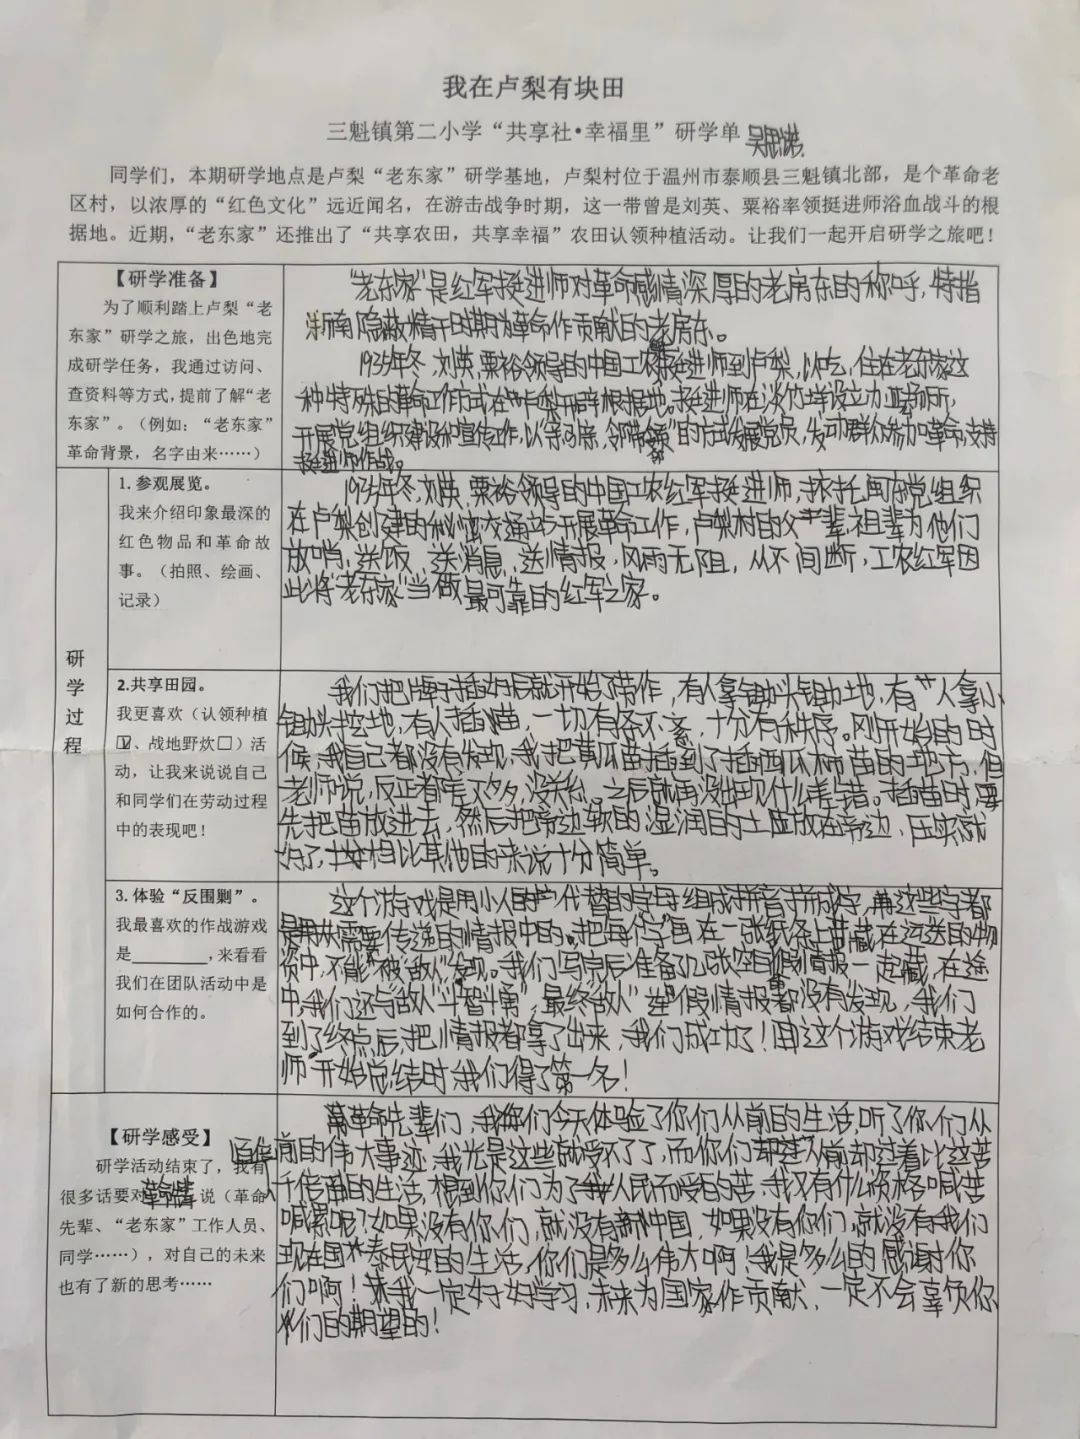 我在卢梨有块田
三魁镇第二小学“共享社•幸福里”研学单
同学们，本期研学地点是卢梨“老东家”研学基地，卢梨村位于温州市泰顺县三魁镇北部，是个革命老
区村，以浓厚的“红色文化”远近闻名，在游击战争时期，这一带曾是刘英、粟裕率领挺进师浴血战斗的根
据地。近期，“老东家”还推出了“共享农田，共享幸福”农田认领种植活动。让我们一起开启研学之旅吧！
【研学准备】
为了顺利踏上卢梨“老
东家”研学之旅，出色地完
成研学任务，我通过访问、
查资料等方式，提前了解“老
东家”。（例如：“老东家”
革命背景，名字由来……）
“老东家”是红军挺进师对革命感情深厚的老房东的称呼，特指
浙南隐蔽精干时期为革命作贡献的老房东。
1935年冬，刘英，粟裕领导的中国工农挺进师到卢梨，以吃，住在老东家这
种特殊的革命工作方式在卢梨开辟根据地。挺进师在设立办场所，
开展党组织建设和宣传工作，以的方式发展党员，发动群众参加革命，支持
挺进师作战。
研学过程
1. 参观展览。
我来介绍印象最深的
红色物品和革命故
事。（拍照、绘画、
记录）
1935年冬，刘英，粟裕领导的中国工农红军挺进师，依托闽东党组织
在卢梨创建的秘密交通站开展革命工作，卢梨村的父辈，祖辈为他们
放哨，送饭，送消息，送情报，风雨无阻，从不间断，工农红军因
此将“老东家”当做最可靠的红军之家。
2.共享田园。
我更喜欢（认领种植
☑、战地野炊□）活
动，让我来说说自己
和同学们在劳动过程
中的表现吧！
我们把牌子插好后就开始了劳作，有人拿锄头锄土地，有人拿小
锄头挖地，有人插苗，一切有条不紊，十分有秩序。刚开始的时
候，我自己都没有发现，我把黄瓜苗插到了插西瓜苗的地方，但
老师说，反正都差不多，没关系。之后就再没出现什么差错。插苗时，要
先把苗放进去，然后把旁边软的湿润的土壤放在旁边，压实就
好了，相比其他的来说十分简单。
3. 体验“反围剿”。
我最喜欢的作战游戏
是________，来看看
我们在团队活动中是
如何合作的。
这个游戏是用小人的代替的字母组成拼音拼成字，再这些字都
是需要传递的情报中的。把每个字画在一张纸条上藏在运送的物
资中，不能被“敌人”发现。我们写完后准备了几张空白假情报一起藏，在途
中，我们还与“敌人”斗智斗勇，最终“敌人”连假情报都没有发现，我们
到了终点后，把情报都拿了出来，我们成功了！由这个游戏结束老
师开始总结时，我们得了第一名！
【研学感受】
研学活动结束了，我有
很多话要对革命先辈说（革命
先辈、“老东家”工作人员、
同学……），对自己的未来
也有了新的思考……
革命先辈们，我们今天体验了你们从前的生活，听了你们从
前的伟大事迹，我光是这些就受不了了，而你们从前却过着比这苦
百倍千倍的生活，想到你们为了人民而受的苦，我又有什么资格喊苦
喊累呢？如果没有你们，就没有新中国，如果没有你们，就没有我们
现在国泰民安的生活，你们是多么伟大啊！我是多么的感谢你
们啊！我一定好好学习，未来为国家作贡献，一定不会辜负你
们的期望的！